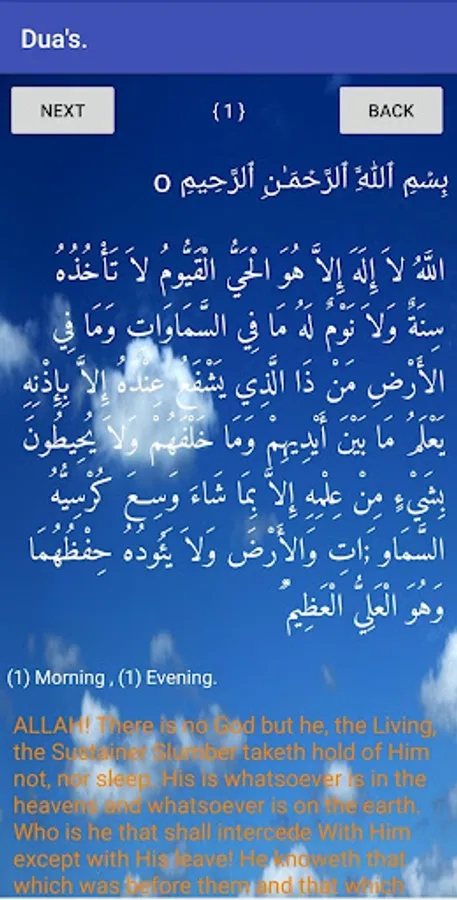 Dua's.
NEXT
{ 1 }
BACK
بِسْمِ ٱللَّهِ ٱلرَّحْمَـٰنِ ٱلرَّحِيمِ o
اللَّهُ لاَ إِلَهَ إِلاَّ هُوَ الْحَيُّ الْقَيُّومُ لاَ تَأْخُذُهُ
سِنَةٌ وَلاَ نَوْمٌ لَهُ مَا فِي السَّمَاوَاتِ وَمَا فِي
الأَرْضِ مَنْ ذَا الَّذِي يَشْفَعُ عِنْدَهُ إِلاَّ بِإِذْنِهِ
يَعْلَمُ مَا بَيْنَ أَيْدِيهِمْ وَمَا خَلْفَهُمْ وَلاَ يُحِيطُونَ
بِشَيْءٍ مِنْ عِلْمِهِ إِلاَّ بِمَا شَاءَ وَسِعَ كُرْسِيُّهُ
السَّمَاو ;َاتِ وَالأَرْضَ وَلاَ يَئُودُهُ حِفْظُهُمَا
وَهُوَ الْعَلِيُّ الْعَظِيمُ
(1) Morning , (1) Evening.
ALLAH! There is no God but he, the Living,
the Sustainer Slumber taketh hold of Him
not, nor sleep. His is whatsoever is in the
heavens and whatsoever is on the earth.
Who is he that shall intercede With Him
except with His leave! He knoweth that
which was before them and that which